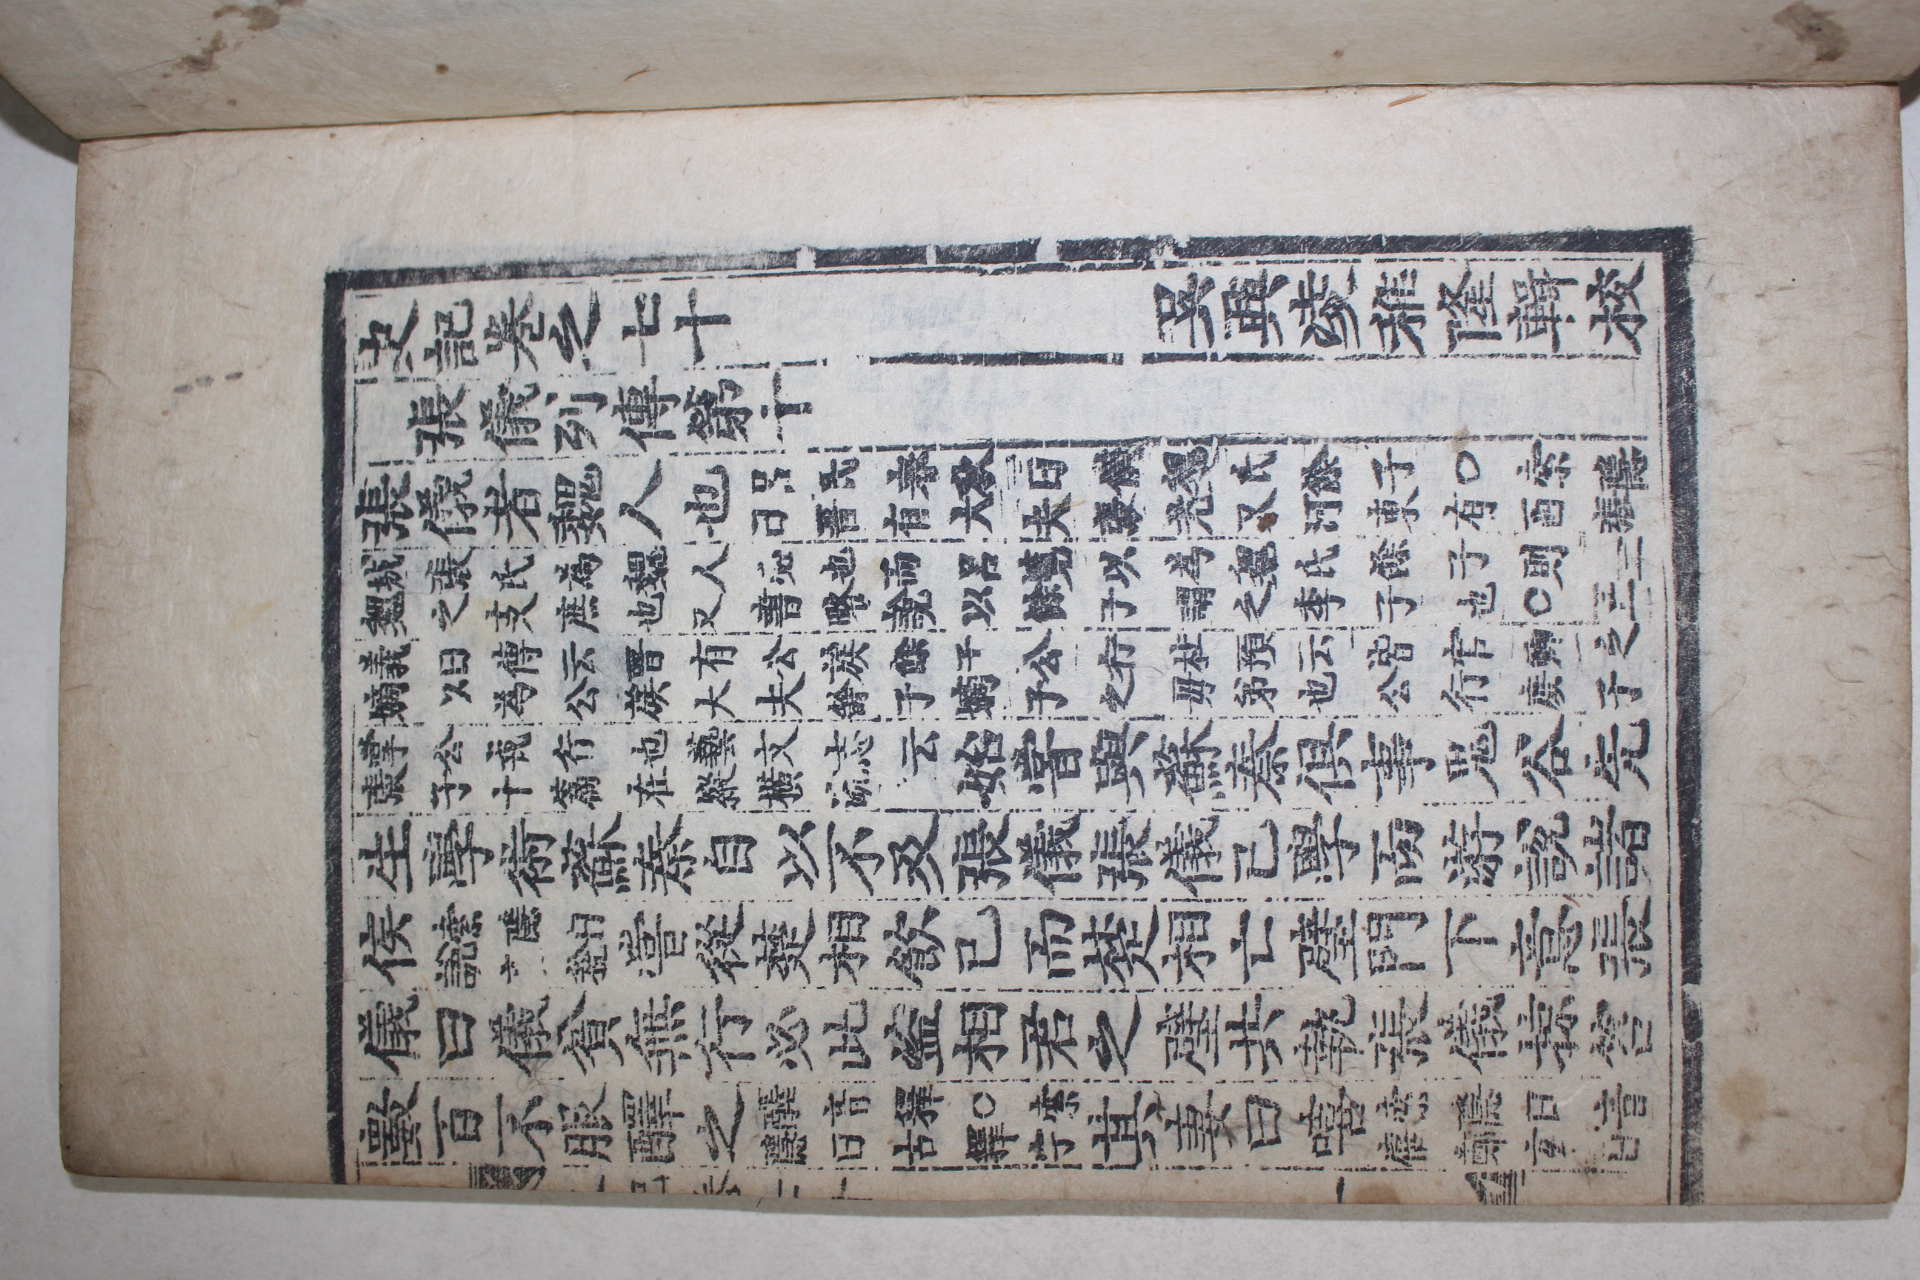 史記卷之七十 吳興凌稚隆輯校
張儀列傳第十
張儀者魏人也呂氏春秋曰儀魏氏餘子○索隱
曰晉有大夫張老又河東有西張
城張氏為魏人必也而呂覽以為魏氏餘子則
魏之支庶也又書略說以餘子謂之李子也○正
義曰傳云晉有公族餘子公行杜預云皆官卿之
嫡以為公族大夫餘子嫡子之母弟也公行庶子
掌公戎行也藝文志云
張子十篇在縱橫流
始嘗與蘇秦俱事鬼谷先
生學術蘇秦自以不及張儀張儀已學而游說諸
侯索隱曰
說音稅
嘗從楚相飲已而楚相亡璧門下意張
儀曰儀貧無行必此盜相君之璧共執張儀掠笞
數百不服醳之醳音釋○索
隱曰古釋字
其妻曰嘻索隱曰音
僖鄭玄曰